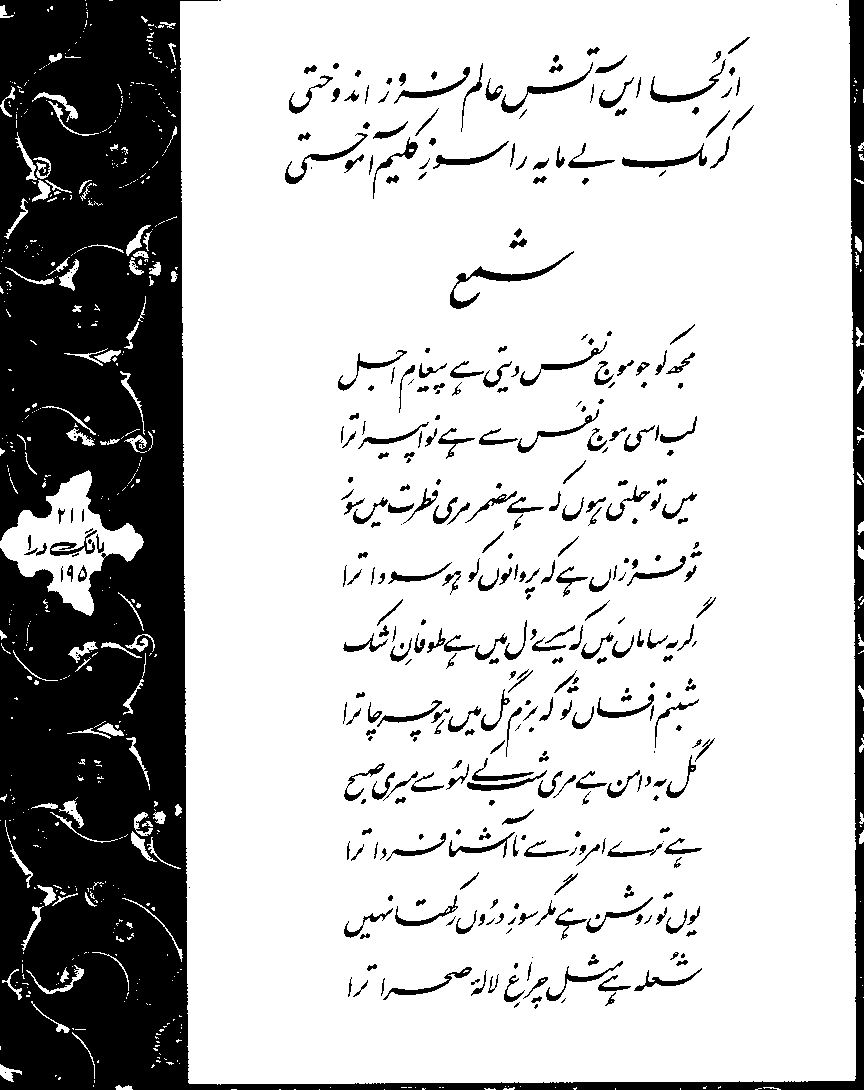 از کُجا ایں آتشِ عالم فروز اندوختی
کرمکِ بے مایہ را سوزِ کلیم آموختی
شمع
مجھ کو جو موجِ نفَس دیتی ہے پیغامِ اجل
لب اسی موجِ نفَس سے ہے نوا پیرا ترا
میں تو جلتی ہوں کہ ہے مضمر مری فطرت میں سوز
تُو فروزاں ہے کہ پروانوں کو ہو سودا ترا
گریہ ساماں مَیں کہ میرے دل میں ہے طوفانِ اشک
شبنم افشاں تُو کہ بزمِ گُل میں ہو چرچا ترا
گُل بہ دامن ہے مری شب کے لہُو سے میری صبح
ہے ترے امروز سے ناآشنا فردا ترا
یوں تو روشن ہے مگر سوزِ درُوں رکھتا نہیں
شُعلہ ہے مثلِ چراغِ لالۂ صحرا ترا
۲۱۱
بانگِ درا
۱۹۵